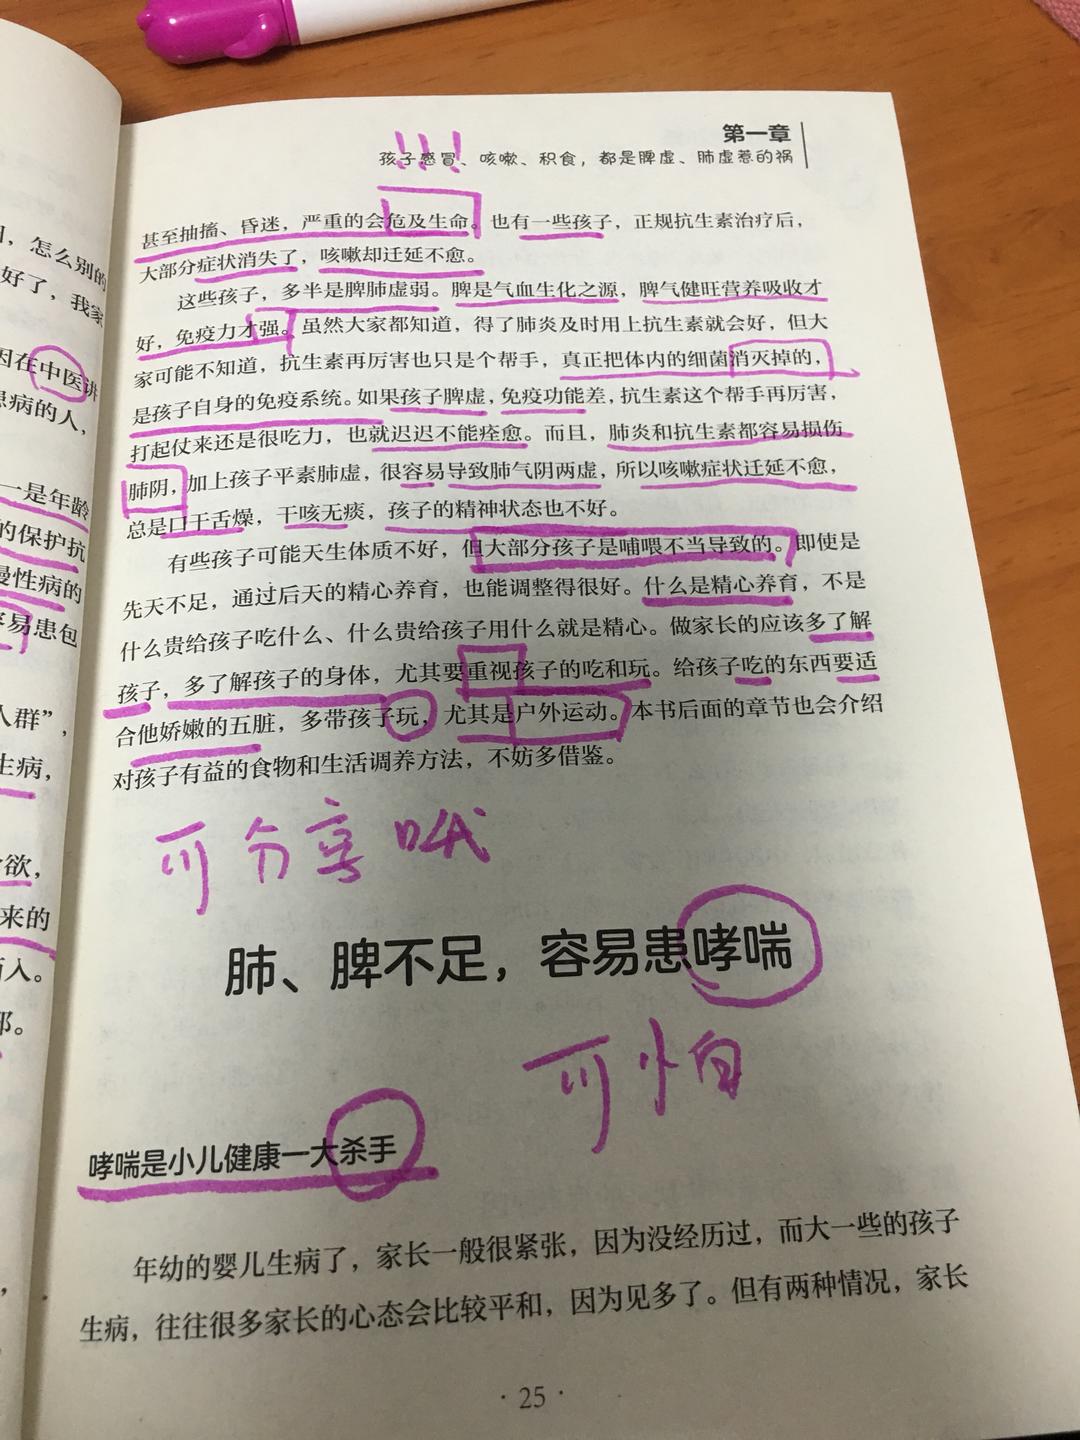 第一章
孩子感冒、咳嗽、积食，都是脾虚、肺虚惹的祸
!!!
甚至抽搐、昏迷，严重的会危及生命。也有一些孩子，正规抗生素治疗后，
大部分症状消失了，咳嗽却迁延不愈。
这些孩子，多半是脾肺虚弱。脾是气血生化之源，脾气健旺营养吸收才
好，免疫力才强。虽然大家都知道，得了肺炎及时用上抗生素就会好，但大
家可能不知道，抗生素再厉害也只是个帮手，真正把体内的细菌消灭掉的，
是孩子自身的免疫系统。如果孩子脾虚，免疫功能差，抗生素这个帮手再厉害，
打起仗来还是很吃力，也就迟迟不能痊愈。而且，肺炎和抗生素都容易损伤
肺阴，加上孩子平素肺虚，很容易导致肺气阴两虚，所以咳嗽症状迁延不愈，
总是口干舌燥，干咳无痰，孩子的精神状态也不好。
有些孩子可能天生体质不好，但大部分孩子是哺喂不当导致的。即使是
先天不足，通过后天的精心养育，也能调整得很好。什么是精心养育，不是
什么贵给孩子吃什么、什么贵给孩子用什么就是精心。做家长的应该多了解
孩子，多了解孩子的身体，尤其要重视孩子的吃和玩。给孩子吃的东西要适
合他娇嫩的五脏，多带孩子玩，尤其是户外运动。本书后面的章节也会介绍
对孩子有益的食物和生活调养方法，不妨多借鉴。
可分享哦
肺、脾不足，容易患哮喘
可怕
哮喘是小儿健康一大杀手
年幼的婴儿生病了，家长一般很紧张，因为没经历过，而大一些的孩子
生病，往往很多家长的心态会比较平和，因为见多了。但有两种情况，家长
·25·
，怎么别的
好了，我家
因在中医讲
患病的人，
一是年龄
的保护抗
慢性病的
容易患包
人群”，
生病，
欲，
来的
而入。
邪。